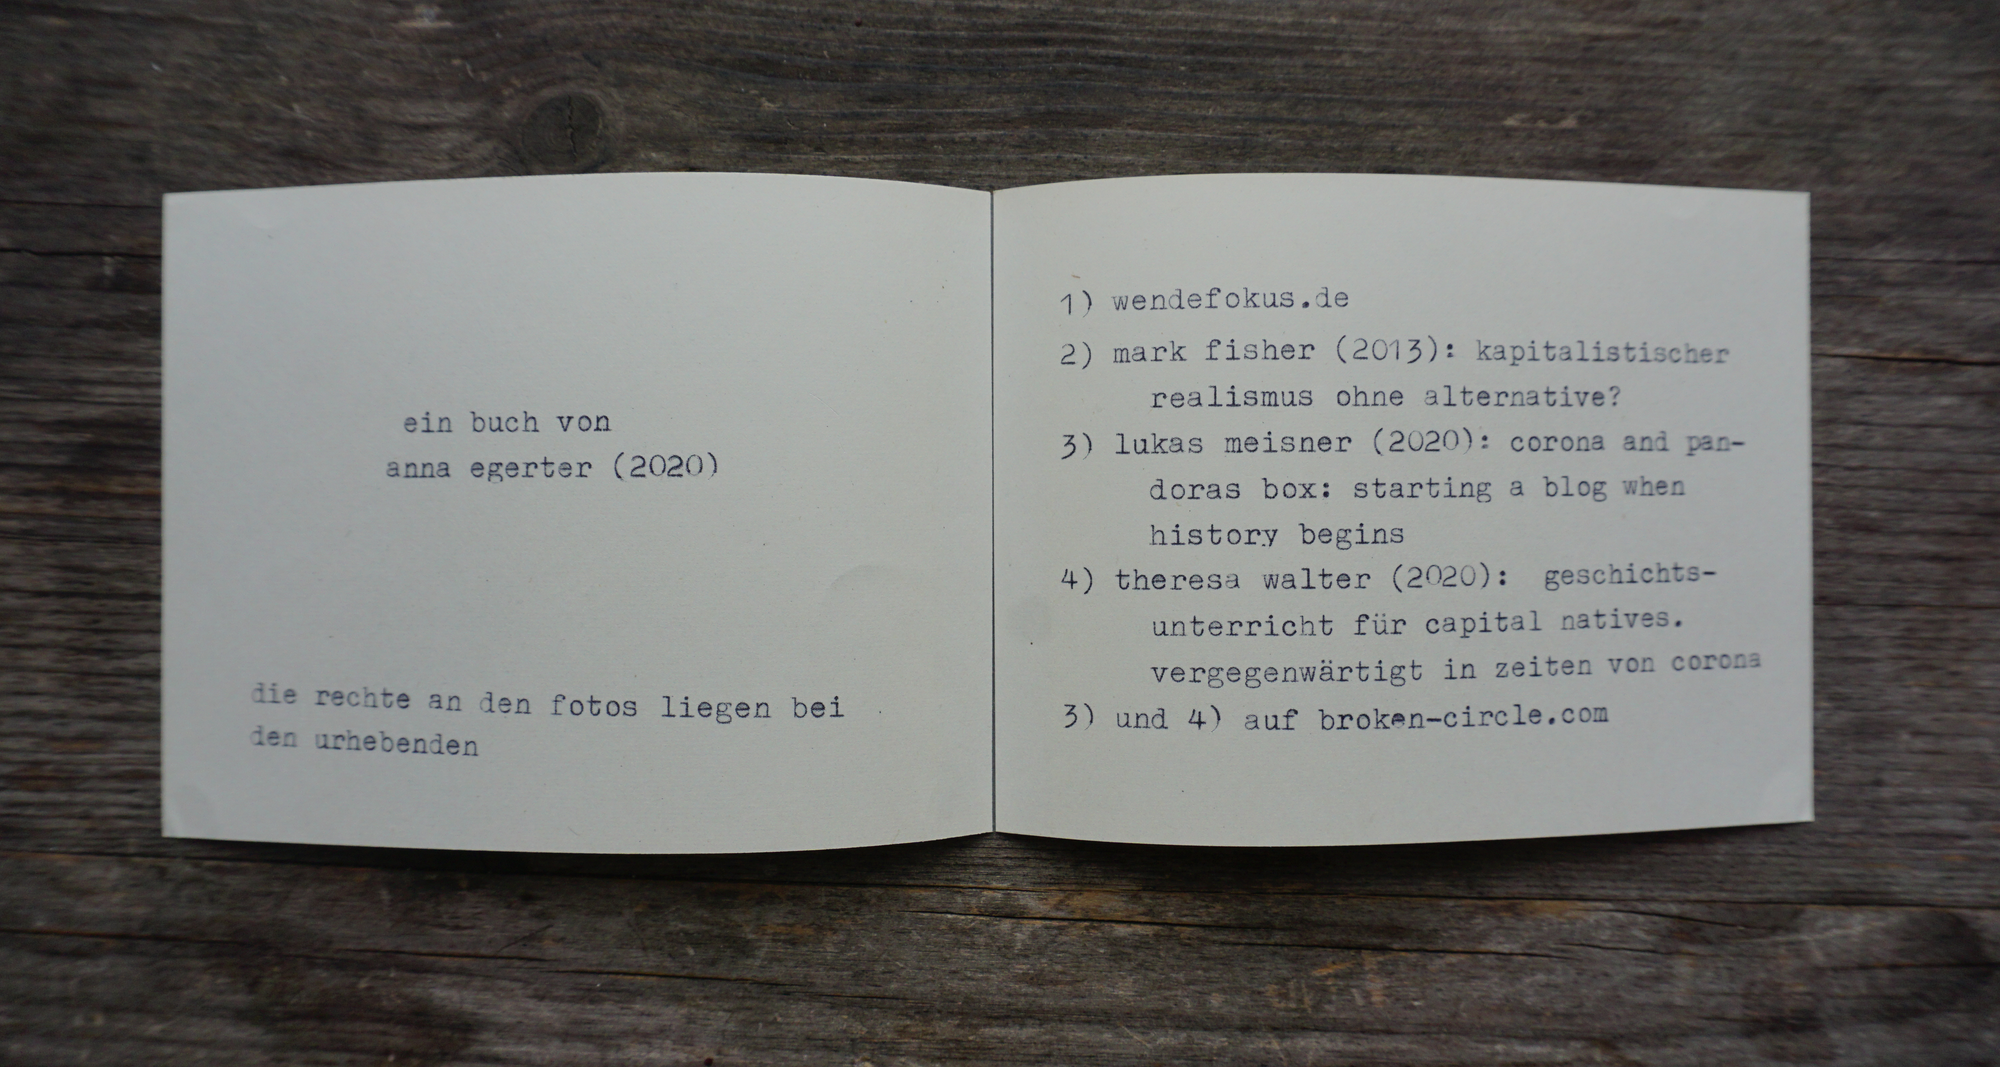 ein buch von
anna egerter (2020)
die rechte an den fotos liegen bei
den urhebenden
1) wendefokus.de
2) mark fisher (2013): kapitalistischer
realismus ohne alternative?
3) lukas meisner (2020): corona and pan-
doras box: starting a blog when
history begins
4) theresa walter (2020): geschichts-
unterricht für capital natives.
vergegenwärtigt in zeiten von corona
3) und 4) auf broken-circle.com